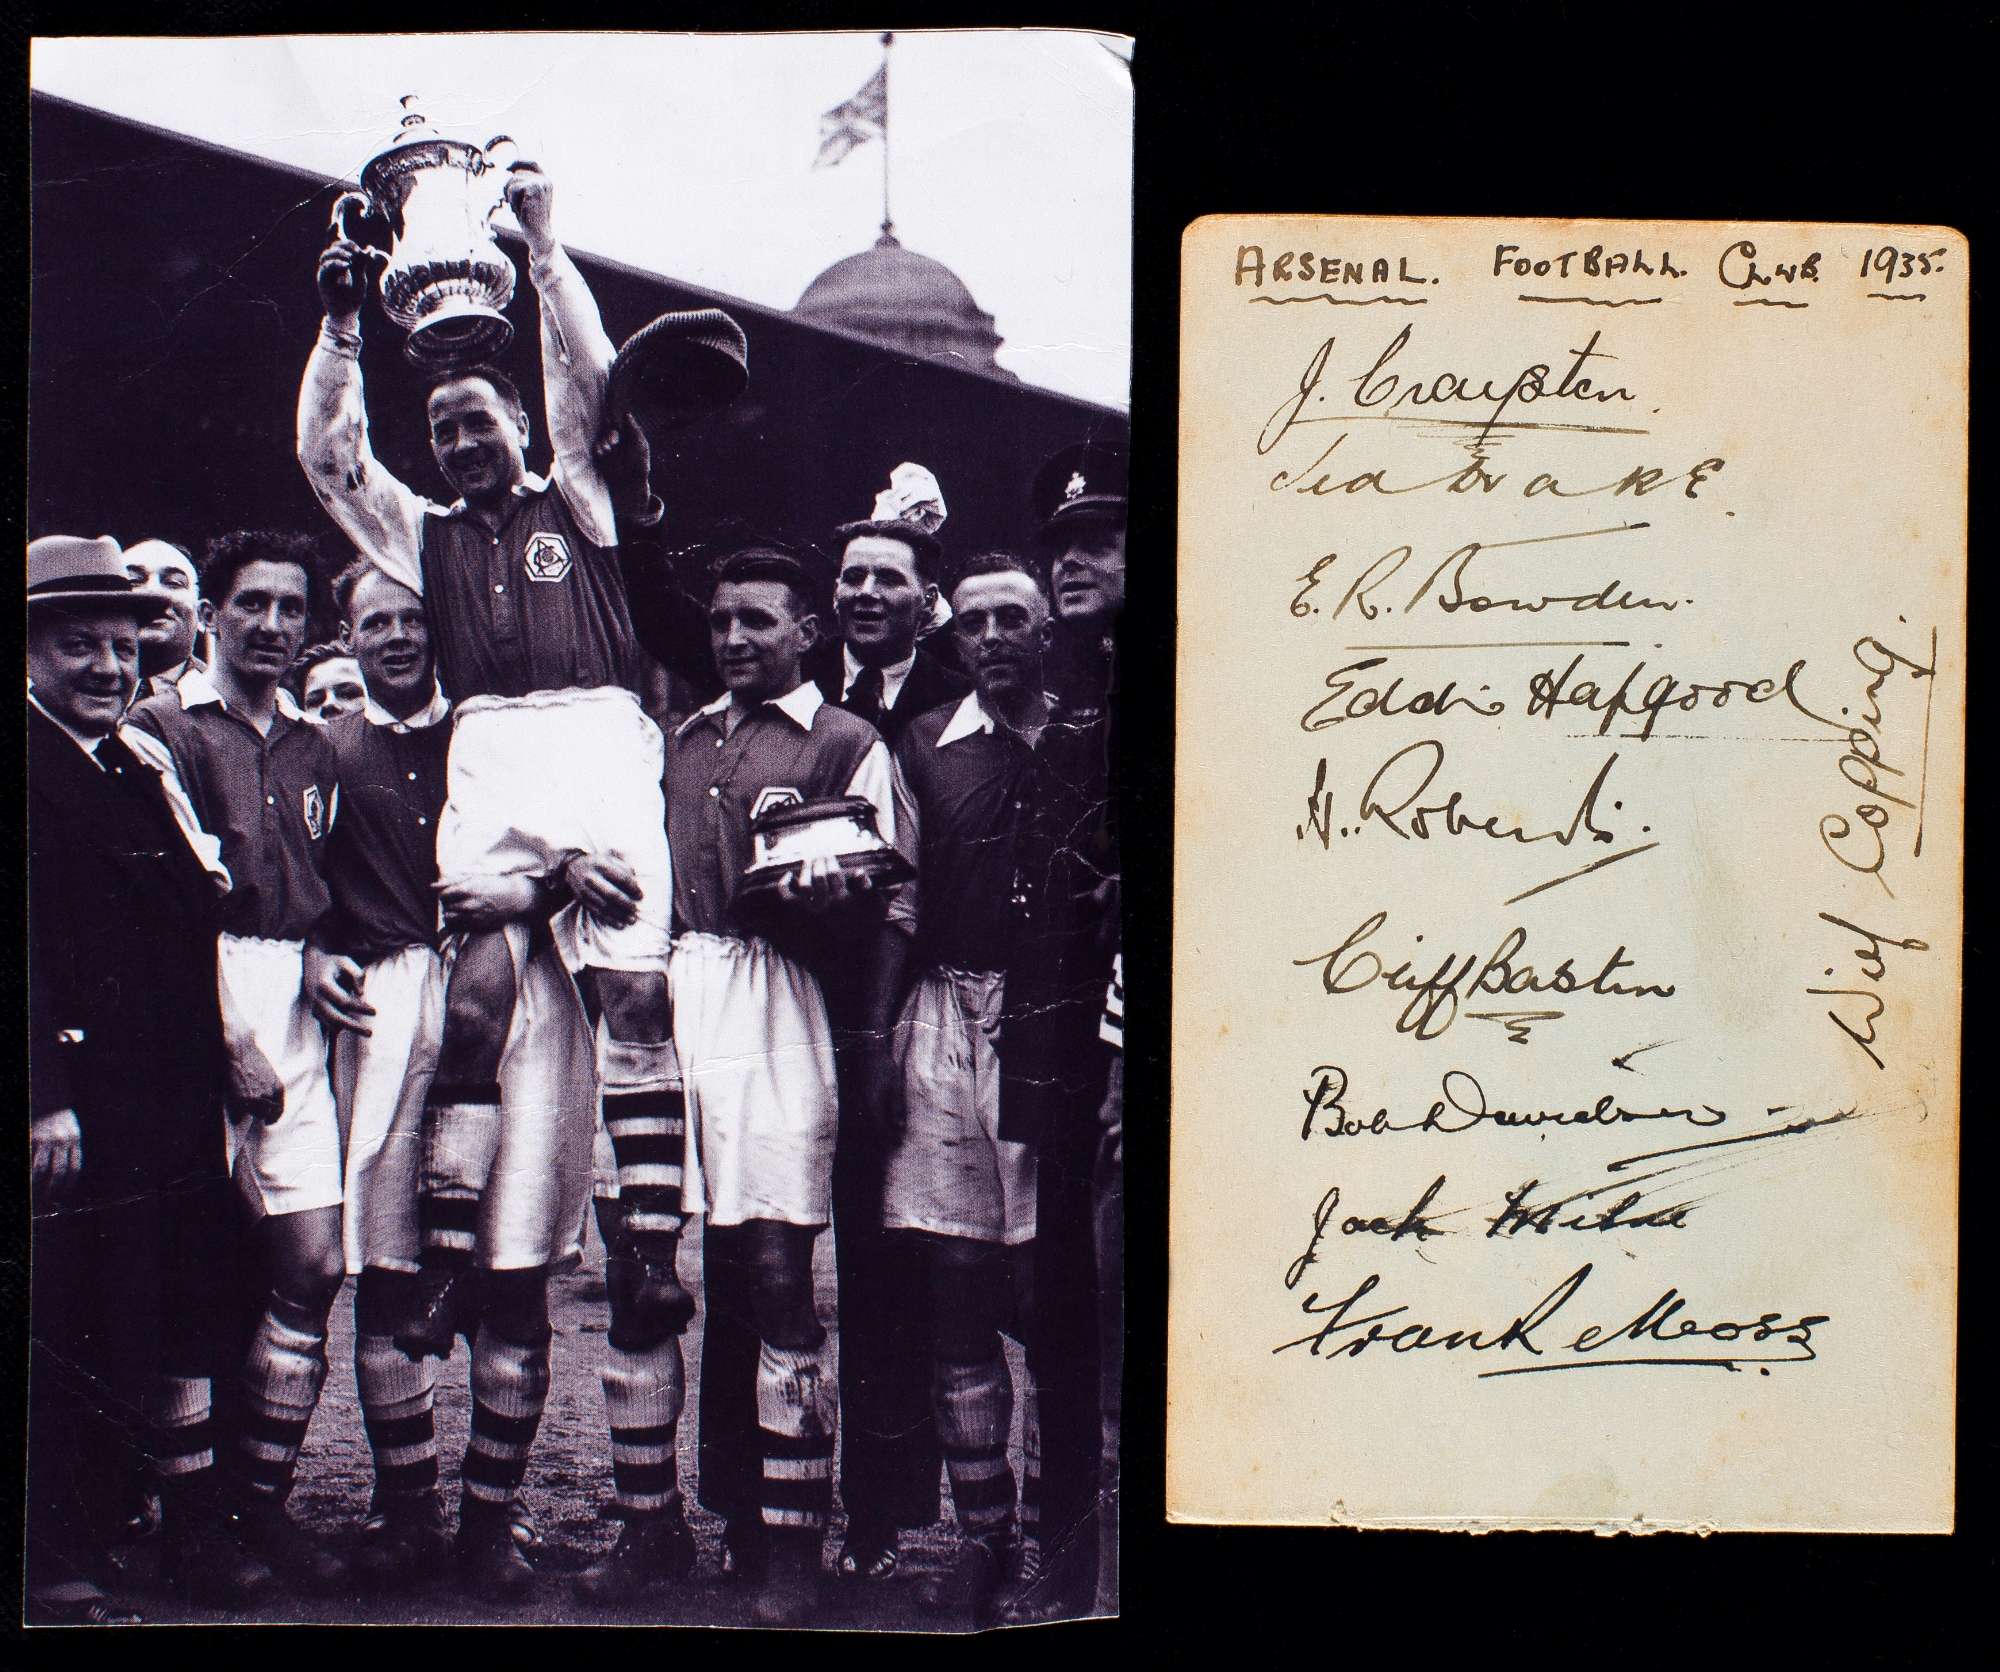 ARSENAL. FOOTBALL. CLUB. 1935.
J. Crayston.
Ted Drake.
E. R. Bowden.
Eddie Hapgood
H. Roberts.
Cliff Bastin
Bob Davidson
Jack Milne
Frank Moss.
Wilf Copping.